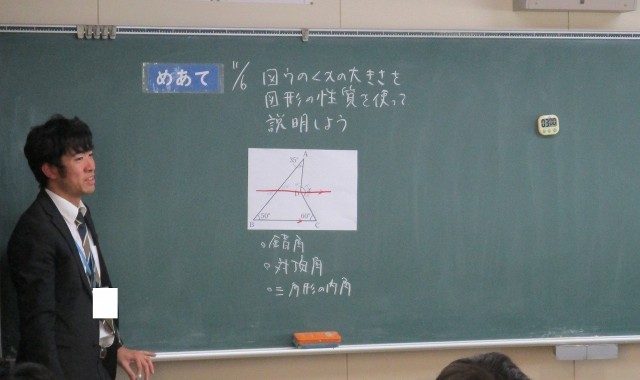 めあて
11/6
図ウの∠xの大きさを
図形の性質を使って
説明しよう
03:00
A
B
C
。錯角
。対頂角
。三角形の内角